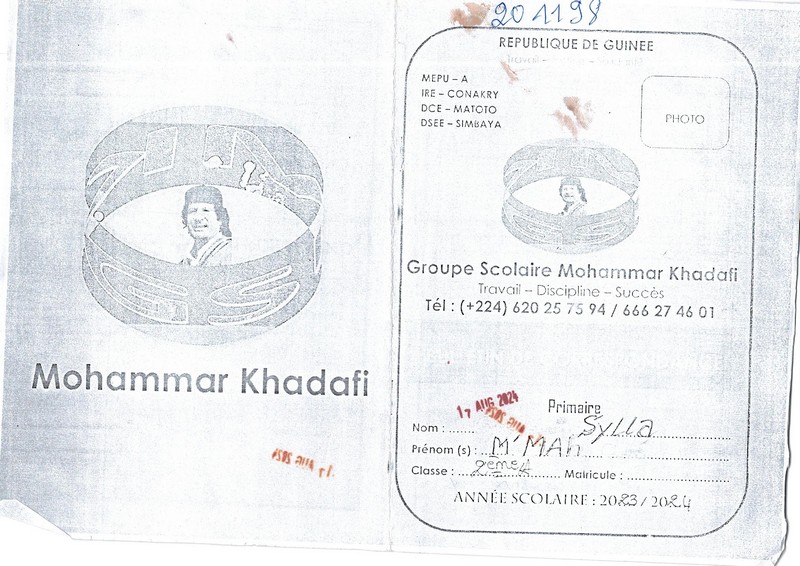 Mohammar Khadafi
201198
REPUBLIQUE DE GUINEE
MEPU – A
IRE – CONAKRY
DCE – MATOTO
DSEE – SIMBAYA
PHOTO
Groupe Scolaire Mohammar Khadafi
Travail – Discipline – Succès
Tél : (+224) 620 25 75 94 / 666 27 46 01
17 AUG 2024
Primaire
Nom : Sylla
Prénom (s) : M'MAH
Classe : 2ème A Matricule :
ANNÉE SCOLAIRE : 2023/2024